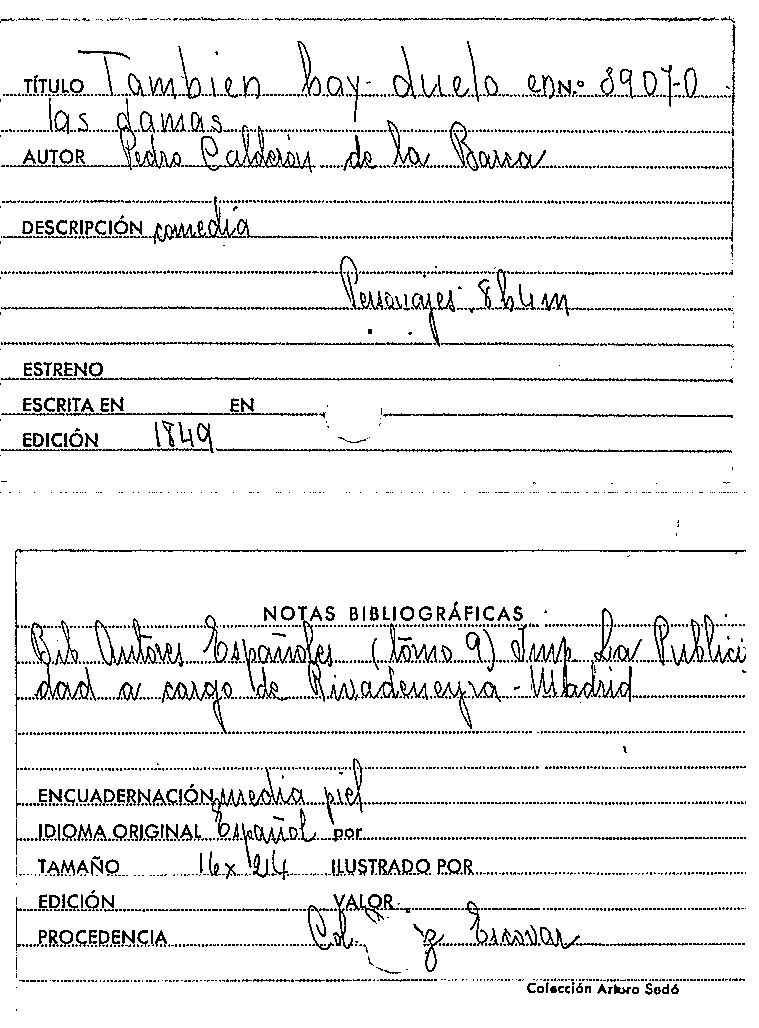 TÍTULO Tambien hay duelo en N.º 8907-0
las damas
AUTOR Pedro Calderón de la Barca
DESCRIPCIÓN comedia
Personajes 8h4m
ESTRENO
ESCRITA EN EN
EDICIÓN 1849
NOTAS BIBLIOGRÁFICAS
Bib Autores Españoles (tomo 9) Imp La Publici
dad a cargo de Rivadeneyra - Madrid
ENCUADERNACIÓN media piel
IDIOMA ORIGINAL Español por
TAMAÑO 16x24 ILUSTRADO POR
EDICIÓN VALOR
PROCEDENCIA Col. Escovar
Colección Arturo Sedó